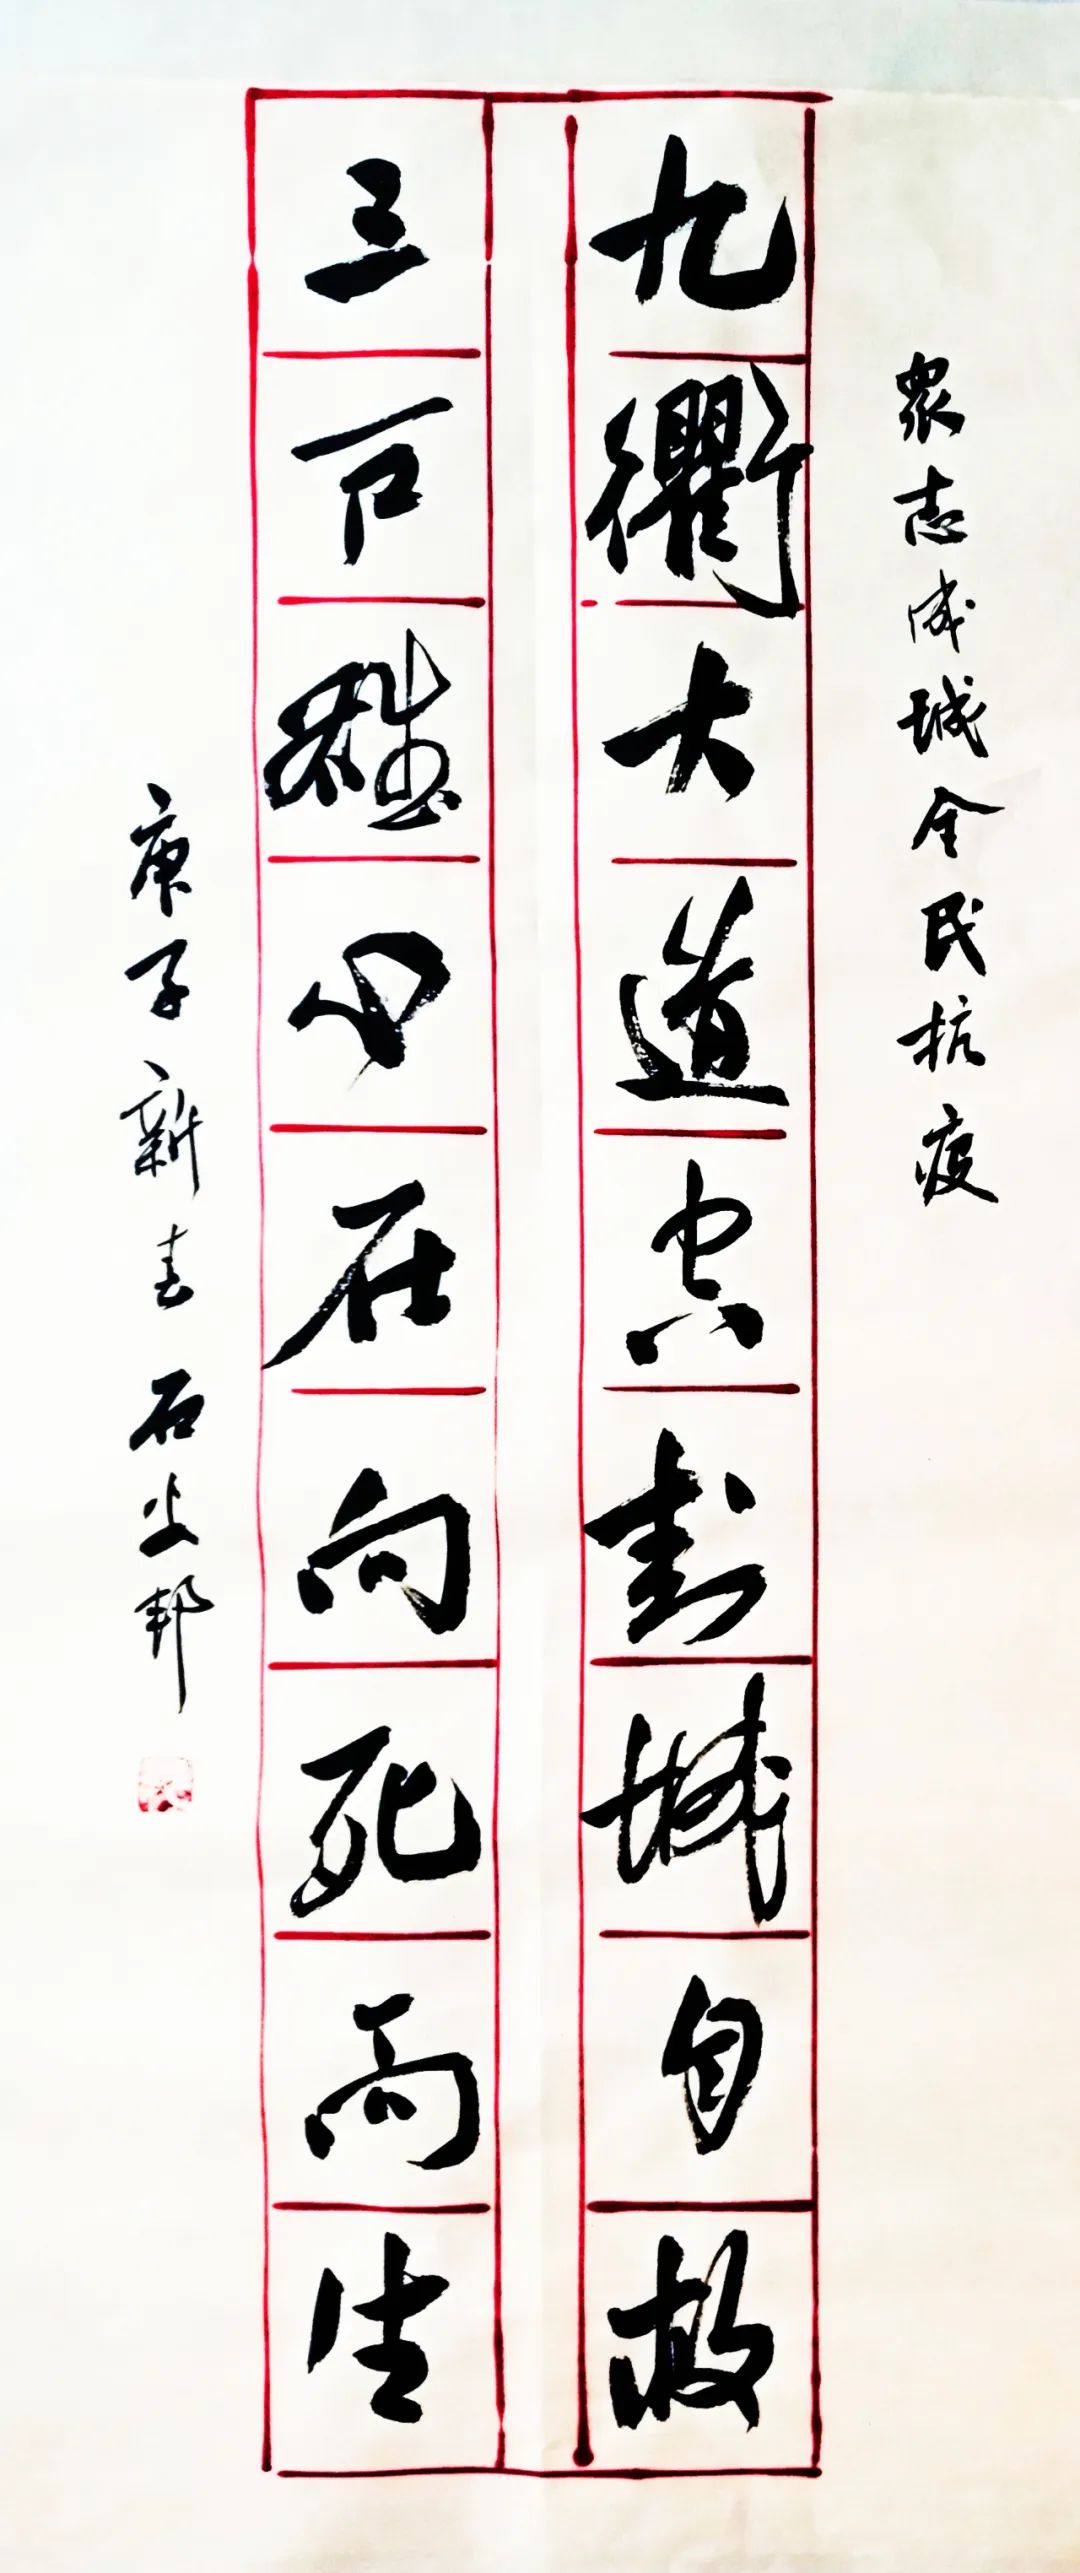 眾志成城全民抗疫
九衢大道空封城自救
三户雄心在向死而生
庚子新春 石邦